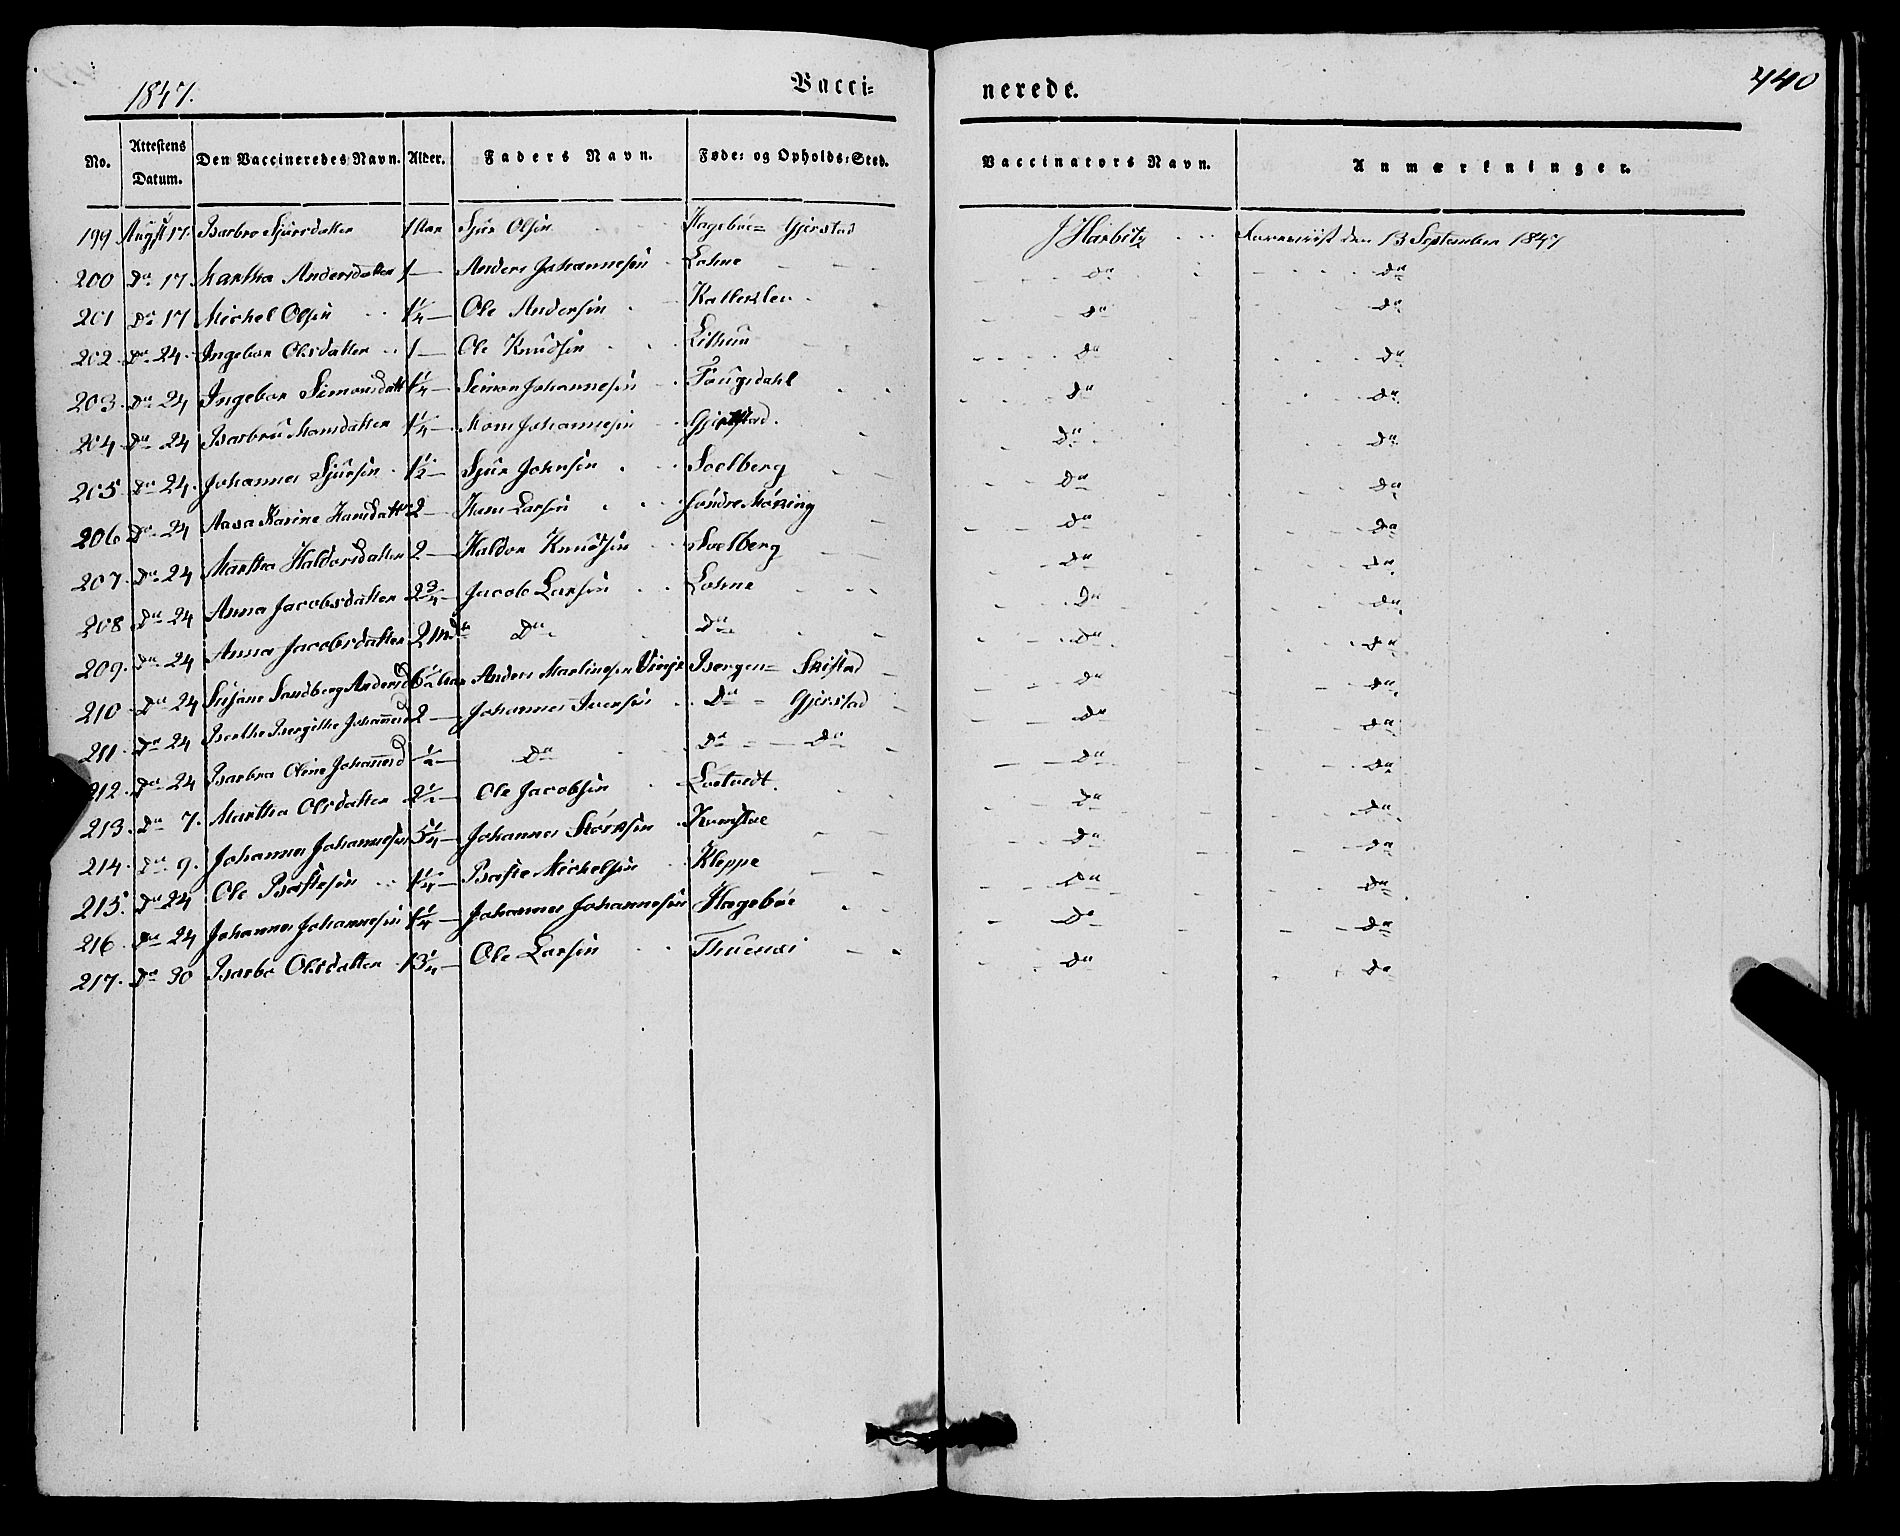 1847.
Vacci=
nerede.
440
No. Attestens Datum. Den Vaccineredes Navn. Alder. Faders Navn. Føde= og Opholds=Sted. Vaccinators Navn. Anmærkninger.
199 Augst 17. Barbro Sjursdatter 1 Aar Sjur Olsen Hagebøe = Gjerstad J Harbitz den 13 September 1847
200 Do 17 Martha Andersdatter 1 — Anders Johannesen Lohne Do Do
201 Do 17 Michel Olsen 1¼ — Ole Andersen Do Do
202 Do 24. Ingebor Olsdatter 1 — Ole Knudsen Do Do
203. Do 24 Ingebor Simonsdatt 1¼ — Simon Johannesen Fougsdahl Do Do
204 Do 24 Barbro Monsdatter 1½ — Mons Johannesen Gjerstad. Do Do
205 Do 24. Johannes Sjursen 1½ — Sjur Johnsen Soelberg Do Do
206 Do 24 Karine Hansdatter 2 — Hans Larsen Do Do
207. Do 24 Martha Haldorsdatter 2 — Haldor Knudsen Soelberg Do Do
208 Do 24 Anna Jacobsdatter 2¾ — Jacob Larsen Lohne Do Do
209. Do 24 Anna Jacobsdatter Do Do Do Do
210 Do 24 Susane Sandberg Andersd 6½ Aar Anders Martinesen Bergen = Do Do
211. Do 24 Berthe Bergithe Johannesd 2 — Johannes Iversen Do = Gjerstad Do Do
212. Do 24 Barbra Oline Johannesd ½ — Do Do = — Do Do Do
213. Do 7. Martha Olsdatter 2½ — Ole Jacobsen Loetvedt. Do Do
214. Do 9. Johannes Johannesen 5¼ — Johannes Do Do
215. Do 24 Ole Bastesen 1¼ — Baste Michelsen Kleppe Do Do
216 Do 24 Johannes Johannesen 1¼ — Johannes Johannesen Hagebøe Do Do
217. Do 30 Barbo Olsdatter 13¼ — Ole Larsen Do Do